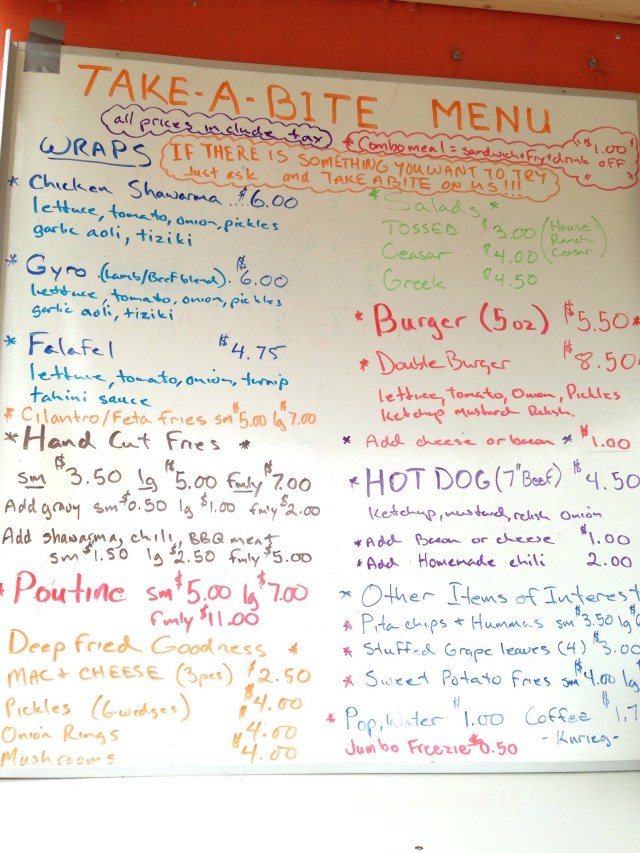 TAKE-A-BITE MENU
all prices include tax
* Combo meal = sandwich + fry + drink $1.00 off
IF THERE IS SOMETHING YOU WANT TO TRY
Just ask and TAKE A BITE ON US!!!
WRAPS
* Chicken Shawarma .... $6.00
lettuce, tomato, onion, pickles
garlic aoli, tiziki
* Gyro (lamb/Beef blend). $6.00
lettuce, tomato, onion, pickles
garlic aoli, tiziki
* Falafel $4.75
lettuce, tomato, onion, turnip
tahini sauce
* Cilantro/Feta fries sm $5.00 lg $7.00
* Hand Cut Fries *
sm $3.50 lg $5.00 fmly $7.00
Add gravy sm $0.50 lg $1.00 fmly $2.00
Add shawarma, chili, BBQ meat
sm $1.50 lg $2.50 fmly $5.00
* Poutine sm $5.00 lg $7.00
fmly $11.00
Deep Fried Goodness *
MAC + CHEESE (3pcs) $2.50
Pickles (6-wedges) $4.00
Onion Rings 4.00
Mushrooms $4.00
* Salads *
TOSSED $3.00 (House
Ceasar $4.00 Ranch
Greek $4.50 Ceasar)
* Burger (5 oz) $5.50 *
* Double Burger $8.50
lettuce, Tomato, Onion, Pickles
Ketchup Mustard Relish.
* Add cheese or bacon * $1.00
* HOT DOG (7" Beef) $4.50
Ketchup, mustard, relish onion
* Add Bacon or cheese $1.00
* Add Homemade chili 2.00
* Other Items of Interest
* Pita chips + Hummas sm $3.50 lg
* Stuffed Grape leaves (4) $3.00
* Sweet Potato Fries sm $4.00 lg
* Pop, Water $1.00 Coffee $1.7
Jumbo Freezie $0.50 - Kurieg -